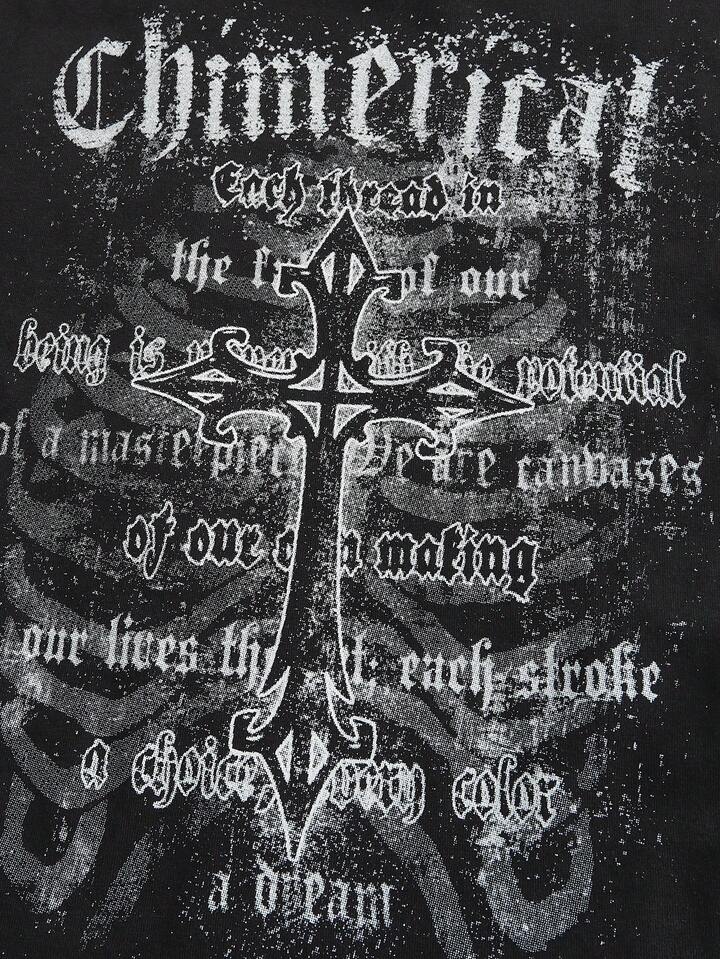 Chimerical
Each thread in
the of our
being is the potential
of a masterpiece We are canvases
of our own making
our lives the art, each stroke
a choice, every color
a dream